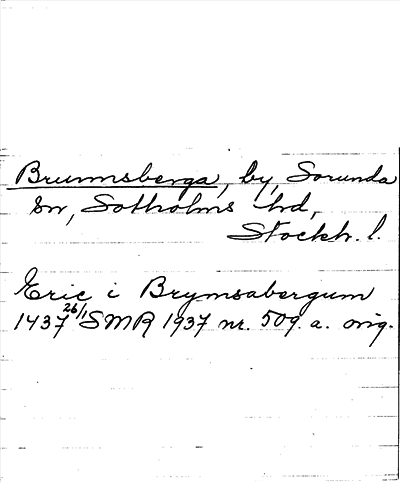 Brunnsberga, by, Sorunda
sn, Sotholms hd,
Stockh. l.
Eric i Brymsabergum
1437 26/1 SMR 1937 nr. 509. a. orig.